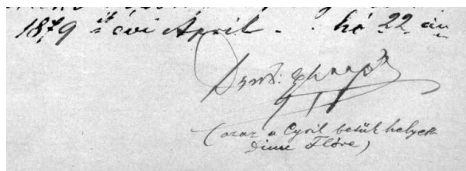 1879 évi April . . hó 22 én
(azaz a Cyril betük helyett
Dime Flóre)